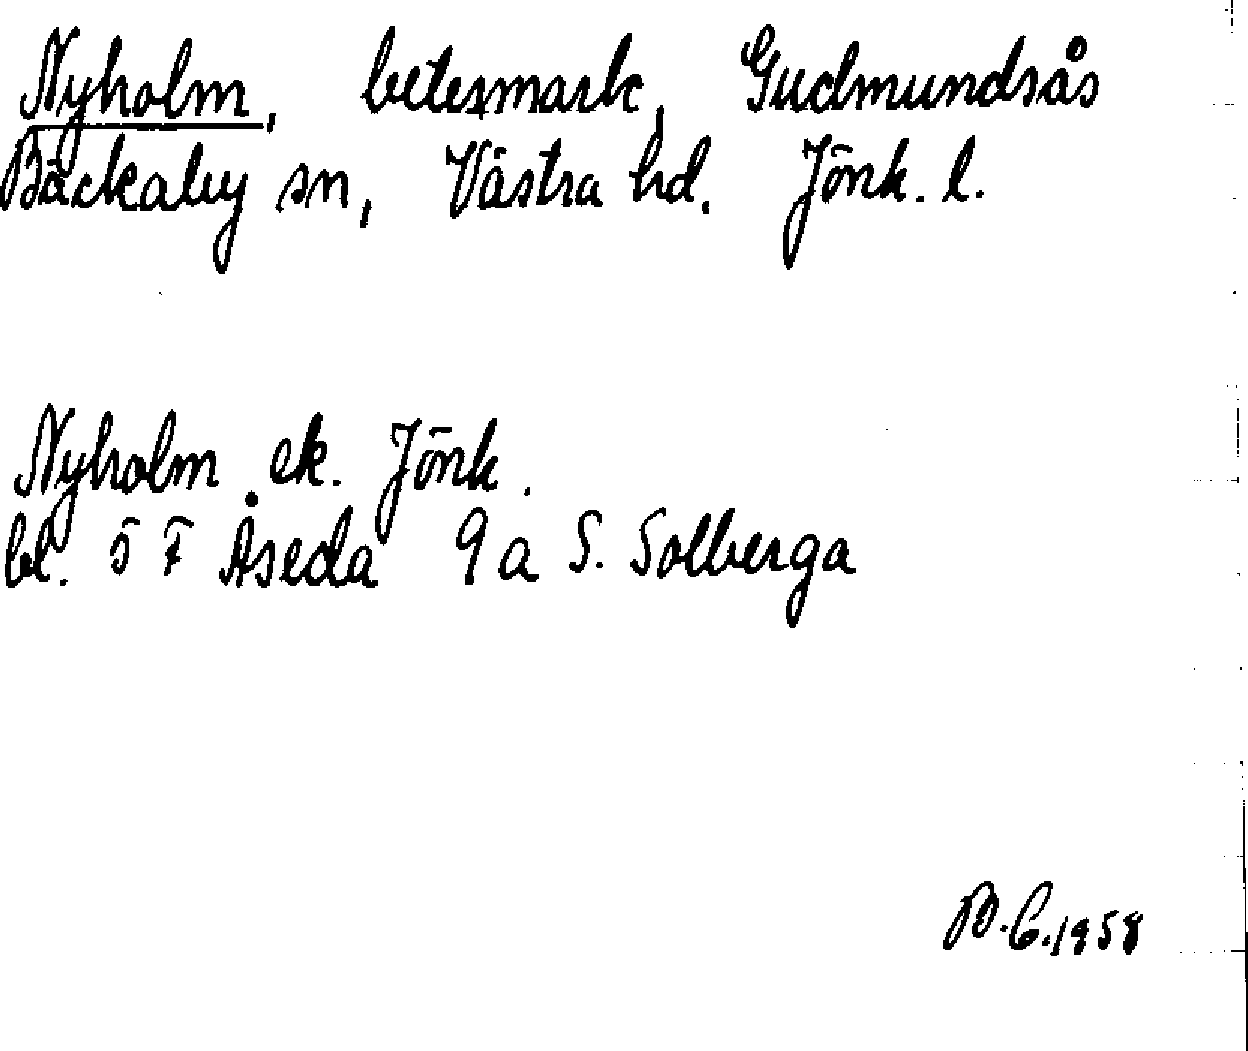 Nyholm, betesmark, Gudmundsås
Bäckaby sn, Västra hd. Jönk. l.
Nyholm ek. Jönk.
bl. 5 F Åseda 9 a S. Solberga
B.C. 1958